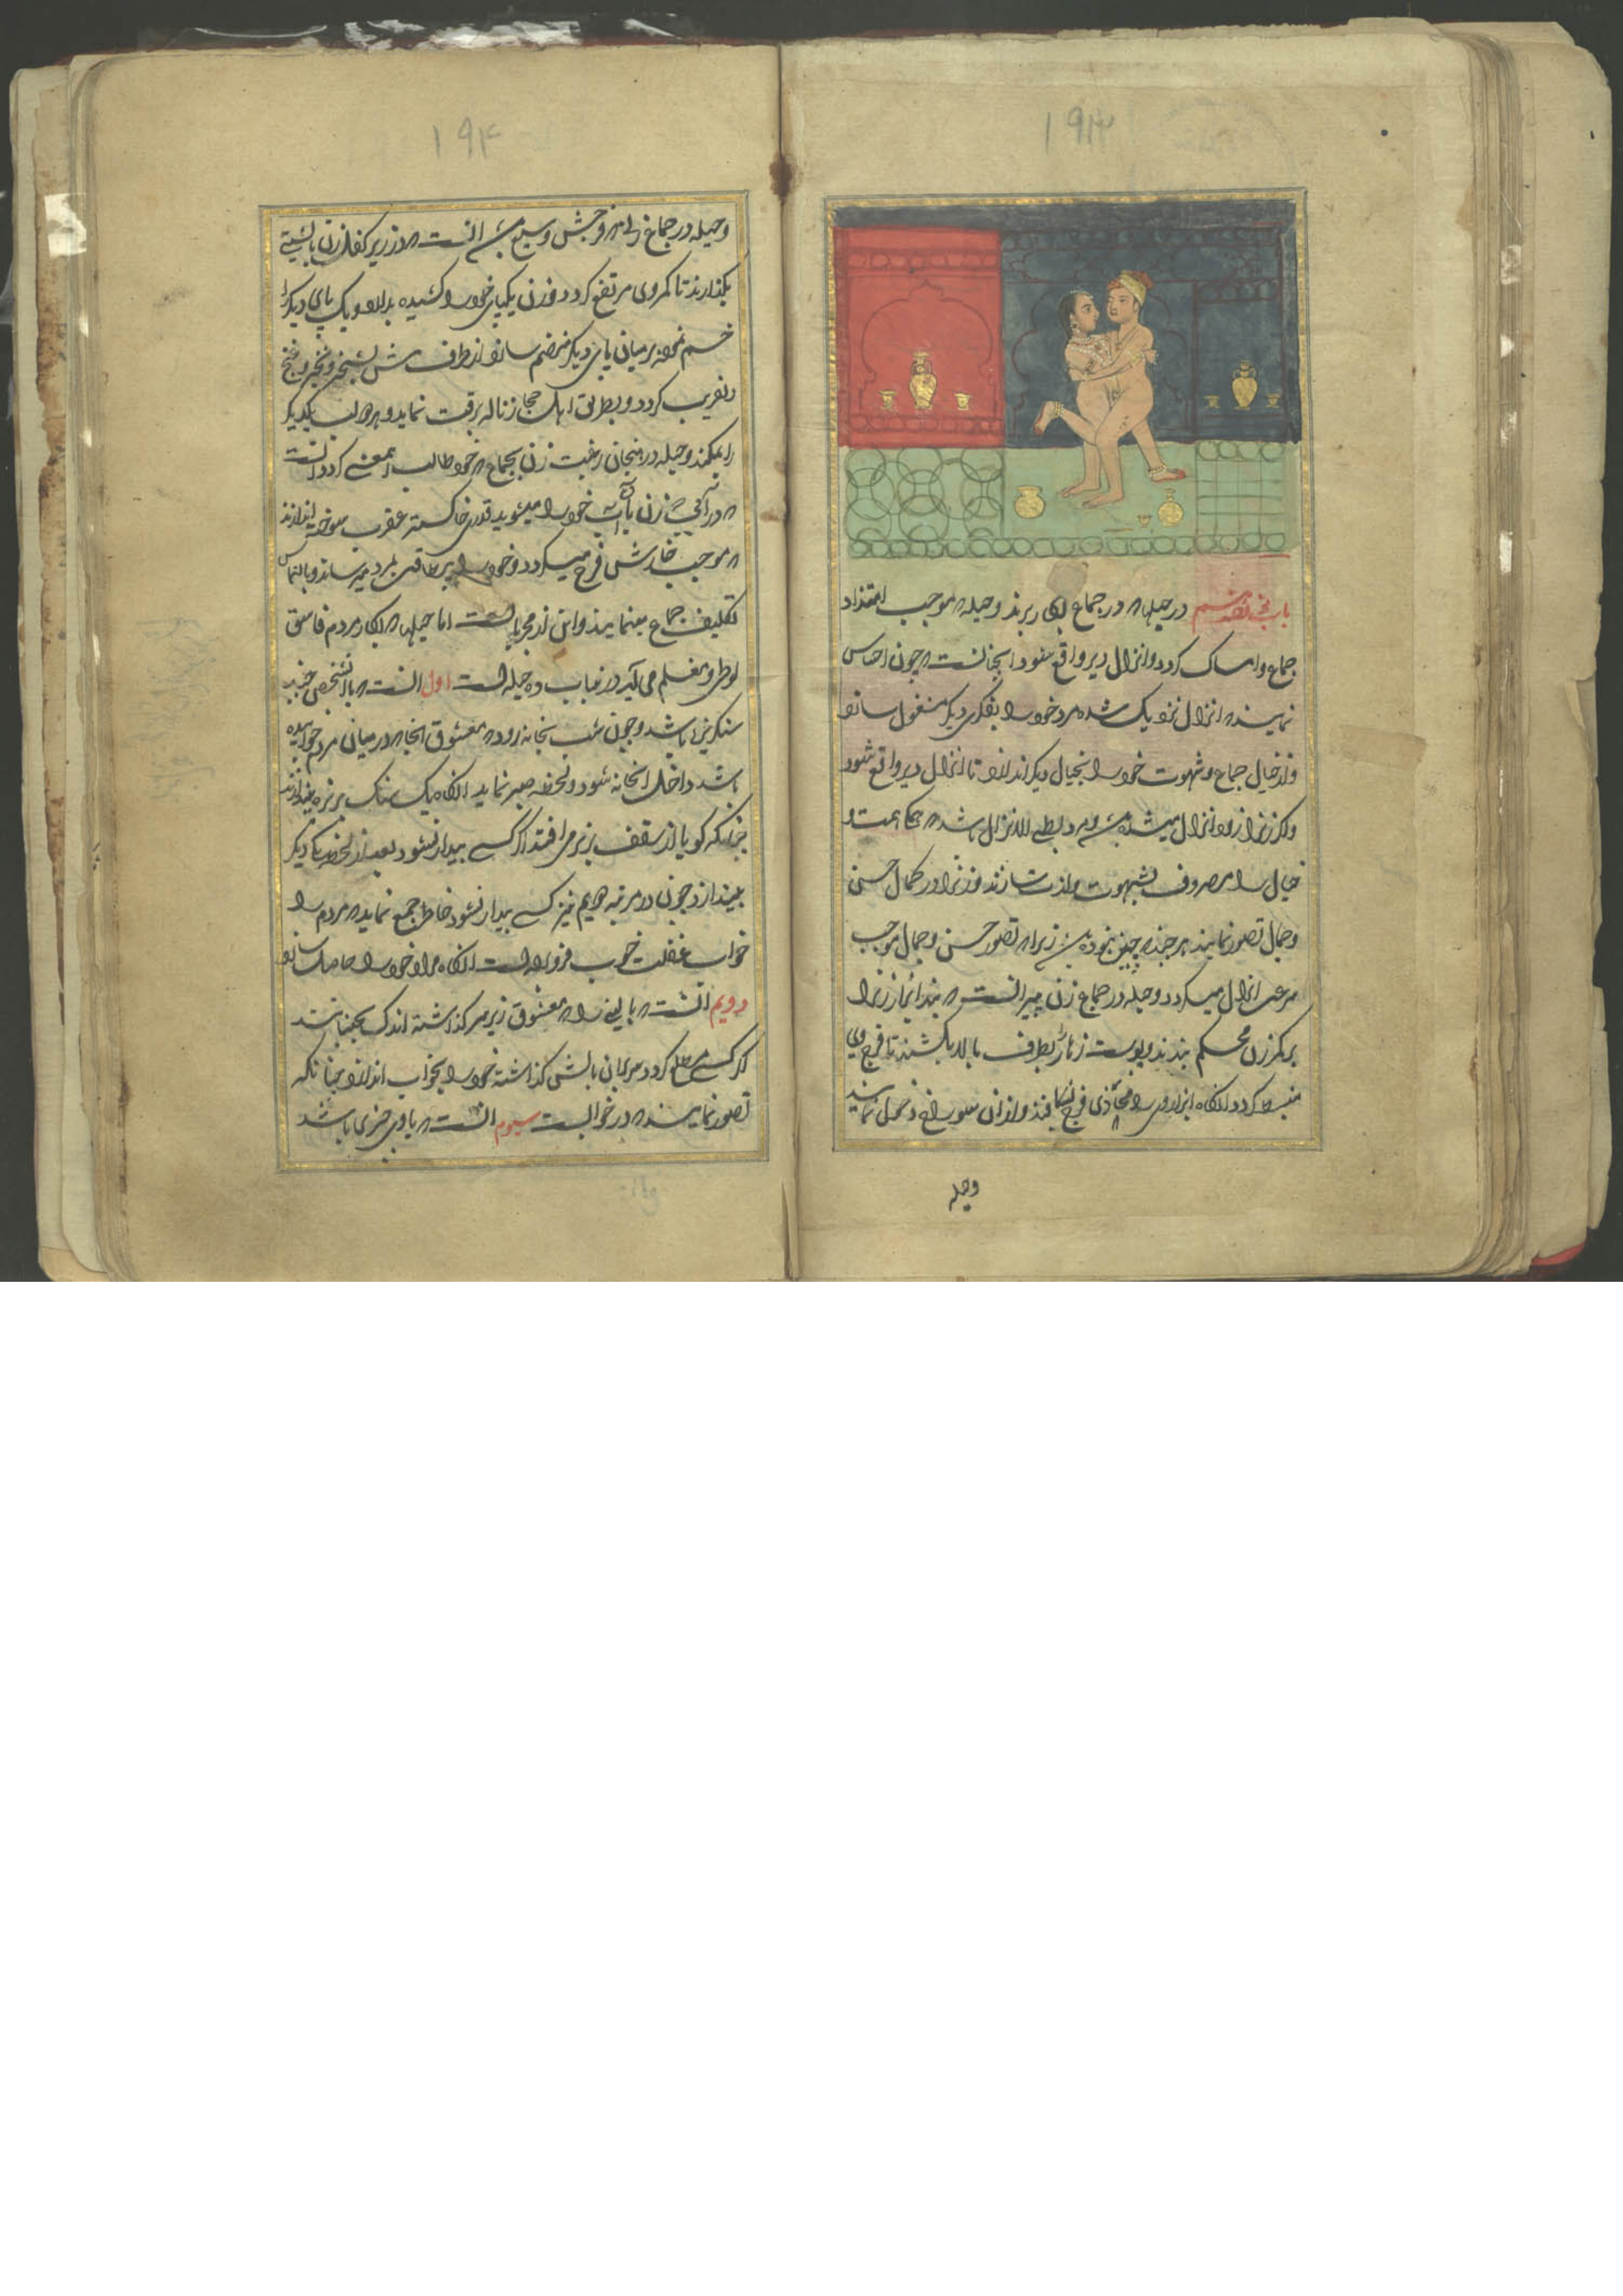 ۱۹۳
باب هفدهم در حیلها که در جماع بکار برند وحیله که موجب امتداد
جماع وامساک کردد وانزال دیر واقع شود اینجا نست که چون احساس
نمایند که انزال نزدیک شده مرد خود را بفکری دیکر مشغول سازد
واز خیال جماع وشهوت خود را بخیال دیکر اندازد تا انزال دیر واقع شود
واکر زن زود انزال میشده باشد ومرد بطی الانزال باشد همکی همت و
خیال را مصروف شهوت ولذت سازند وزن را در کمال حسن
وجمال تصور نمایند هر چند که چنین نبوده باشد زیرا که تصور حسن وجمال موجب
سرعت انزال میکردد وحیله در جماع زن پیر انست که بند ازار زن را
بر کمر زن محکم بندند وپوست زهار بطرف بالا بکشند تا فرج وی
منبسط کردد انکاه ازار وی را محاذی فرج بشکافند واز ان سوراخ دخول نمایند
وحیله
۱۹۴
وحیله در جماع زنی که فرجش وسیع باشد انست که در زیر کفل زن بالشتی
بکذارند تا کمر وی مرتفع کردد وزن یکپای خود را کشیده بدارد ویک پای دیکر را
خم نموده بر میان پای دیکر منضم سازد
وبطریق رقت نماید وهر دو لب یکدیکر
را بمکند وحیله در رغبت زن بجماع که خود طالب اینمعنی کردد انست
که در آبی که زن خود را میشوید قدری خاکستر عقرب سوخته اندازند
که موجب خارش فرج میکردد وخود را بمرد میرساند وبالتماس
تکلیف جماع مینماید واین از مجربا تست اما حیلها که بکار مردم فاسق
لوطی ومغلم می آید درینباب ده حیله است اول انست که با انشخص چند
سنکریزه باشد وچون شب بخانه رود که معشوق انجا در میان مردم خوابیده
باشد داخل انخانه شود ولحظه صبر نماید انکاه یک سنک ریزه بیندازند
چنانکه کویا از سقف بزیر می افتد اکر کسی بیدار نشود بعد از لحظه یکی دیکر
بیندازد چون در مرتبه دویم نیز کسی بیدار نشود خاطر جمع نماید که مردم را
خواب غفلت خوب فرو برده است انکاه مراد خود را حاصل سازد
دویم انست که بالینی را که معشوق زیر سر کذاشته اندک بجنباند
اکر کسی مطلع کردد سر بر ان بالش کذاشته خود را بخواب اندازد چنانکه
تصور نمایند که در خوابست سیوم انست که با وی چیزی باشد